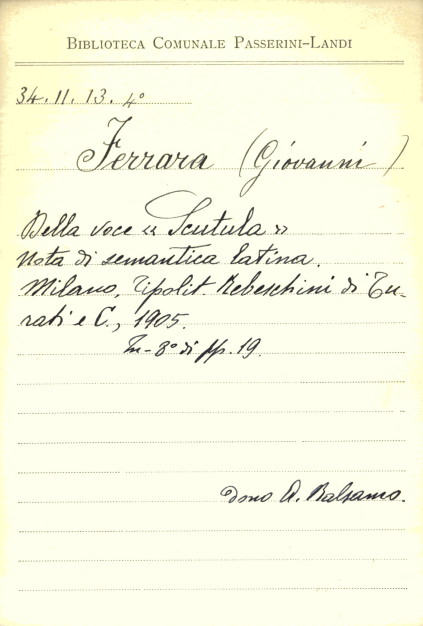 BIBLIOTECA COMUNALE PASSERINI-LANDI
34.II.13.4°
Ferrara (Giovanni)
Della voce « Scutula »
Nota di semantica latina.
Milano, Tipolit. Rebeschini di Tu-
rati e C., 1905.
In-8° di pp. 19.
Dono A. Balsamo.